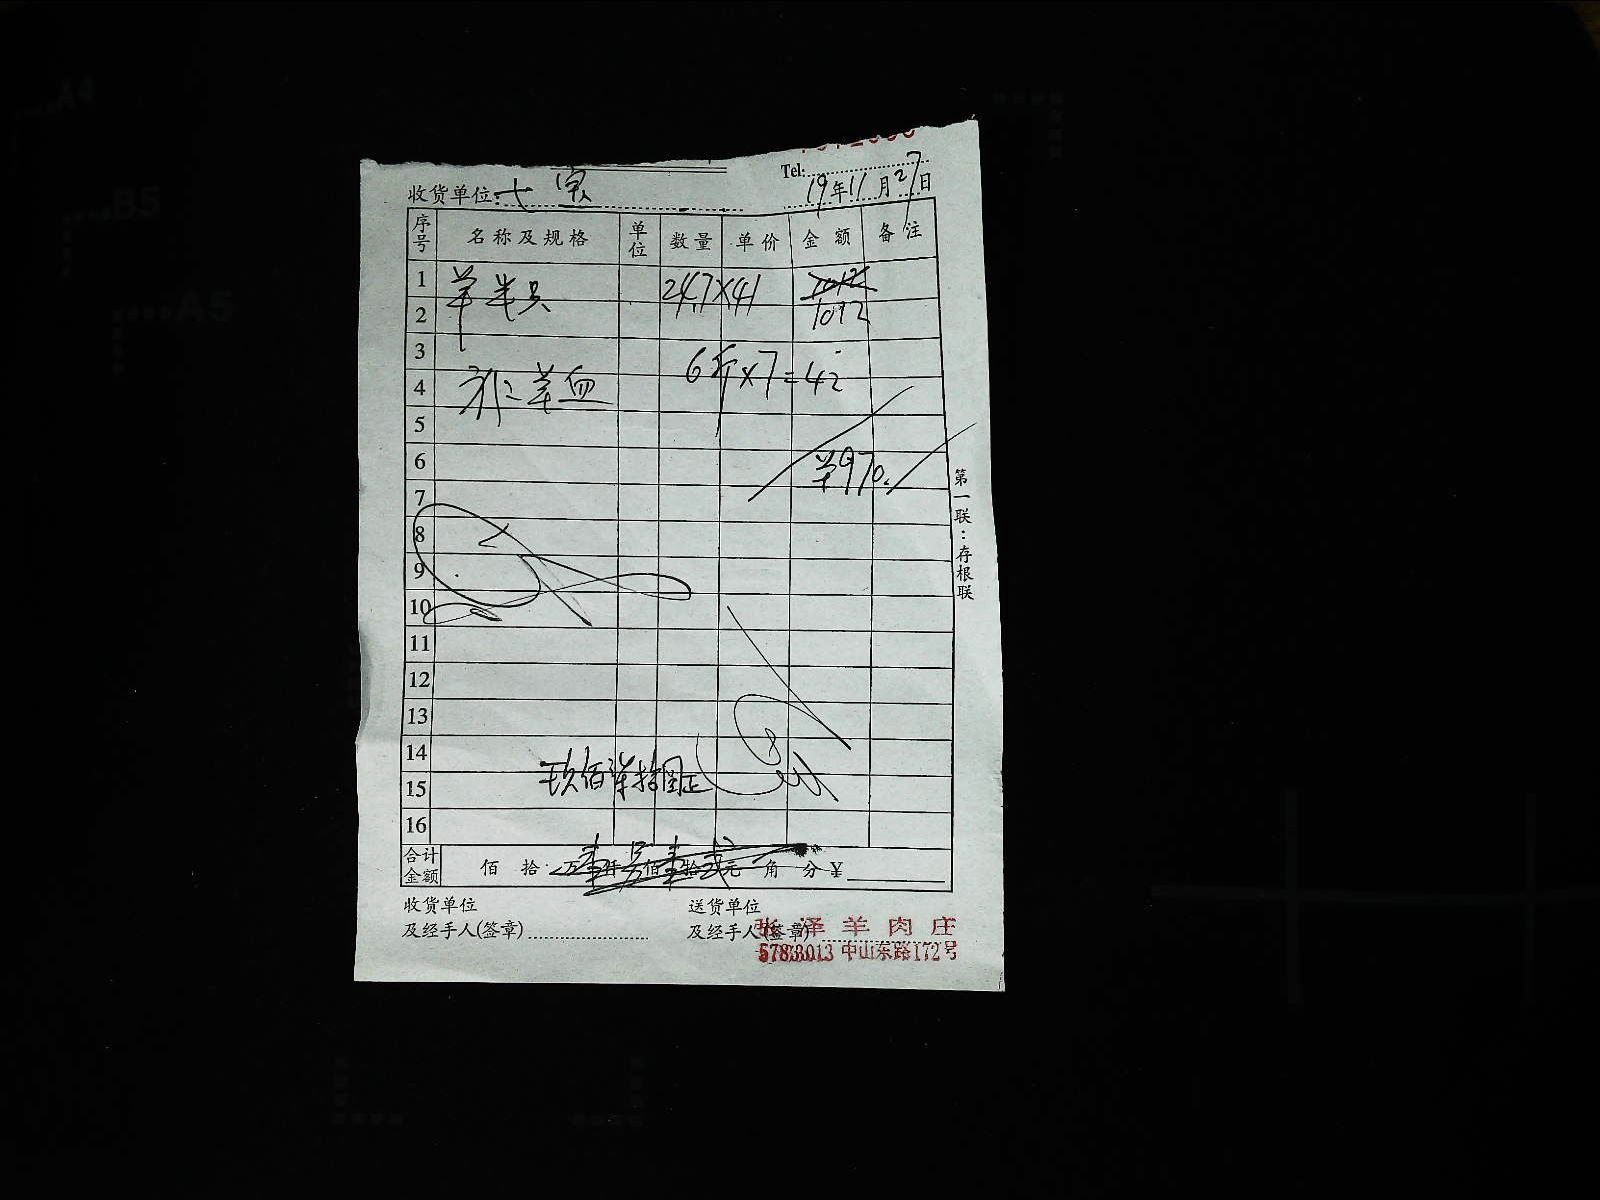 Tel:
收货单位: 七宝 19年11月27日
序号 名称及规格 单位 数量 单价 金额 备注
1 羊半只 24.7×41 1012
2 1012
3 6斤×7=42
4 羊血
5
6 970.
7
8
9
10
11
12
13
14
15 玖佰柒拾圆正
16
合计金额 佰 拾 万壹仟另佰壹拾贰元 角 分 ¥
收货单位 送货单位
及经手人(签章) 及经手人(签章)
张泽羊肉庄
57833013 中山东路172号
第一联:存根联